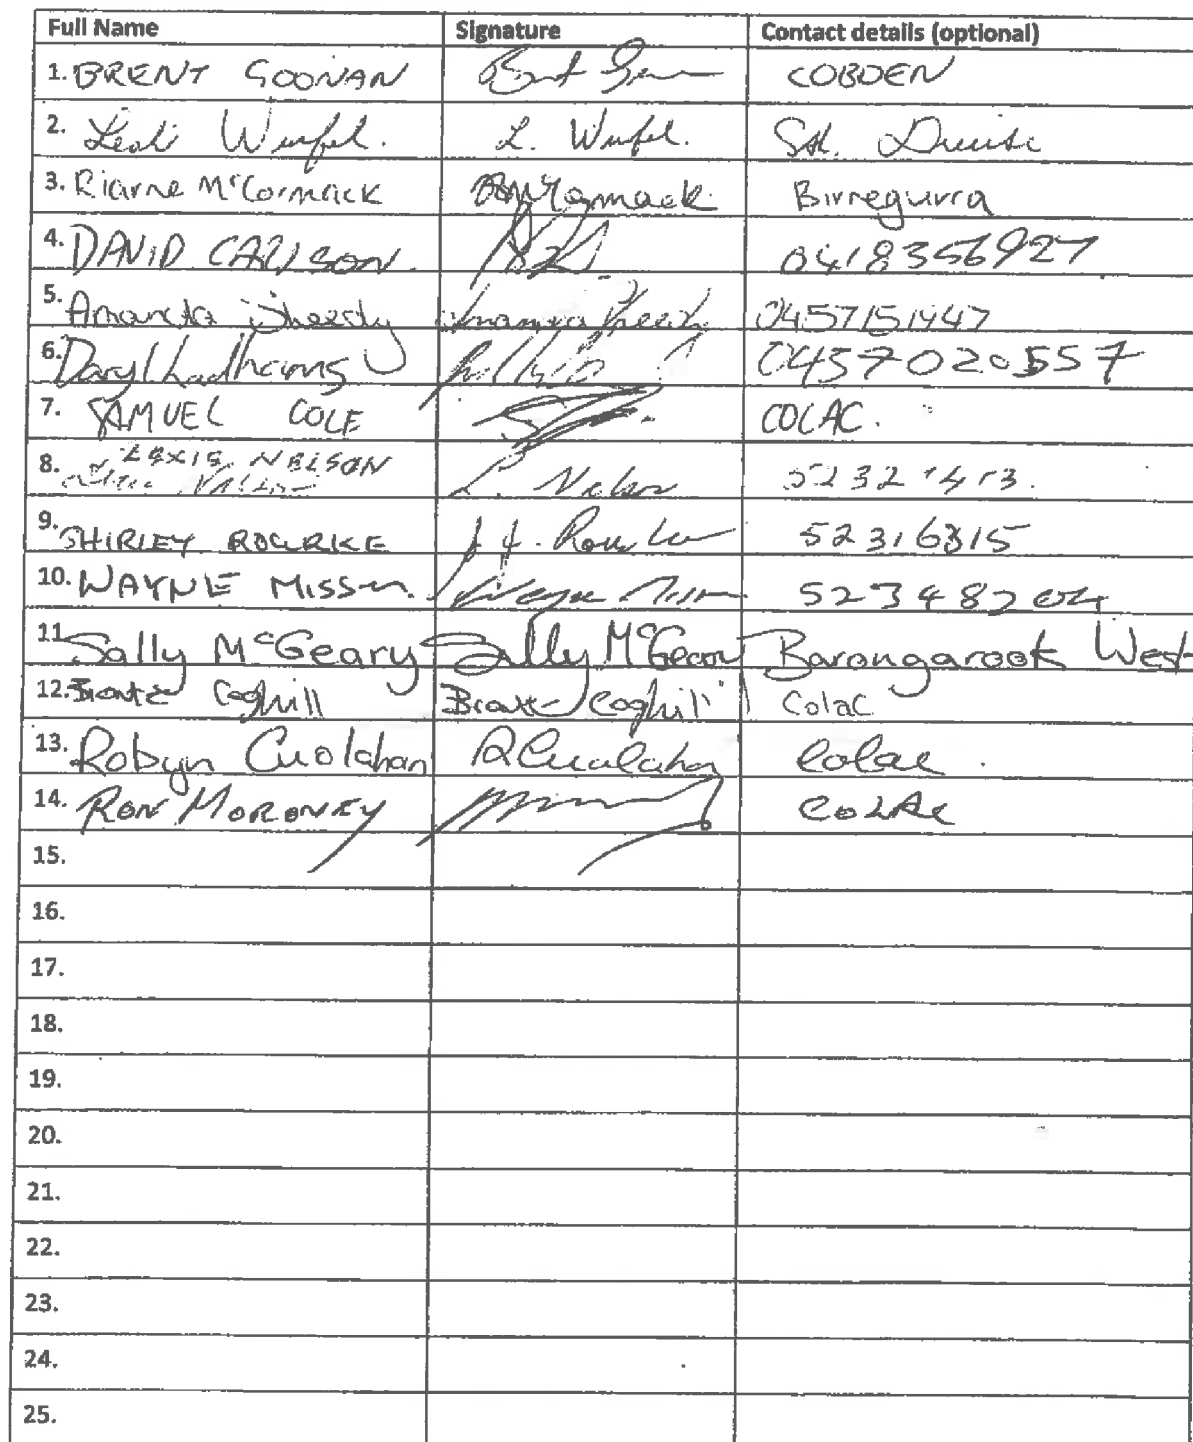 Full Name Signature Contact details (optional)
1. BRENT GOONAN COBDEN
2. L. Wurfel.
3. Riarne McCormack McCormack Birregurra
4. DAVID CARLSON. 0418356927
5. Amanda Sheedy Amanda Sheedy 0457151447
6. Daryl Ladhams 0457020557
7. SAMUEL COLE COLAC.
8. NELSON L. Nelson
9. SHIRLEY ROURKE 52316315
10. WAYNE MISSEN. Wayne 52348204
11. Sally McGeary Sally McGeary Barongarook West
12. Bronte Coghill Bronte Coghill Colac
13. Robyn Cuolahan R Cuolahan Colac.
14. RON MORONEY COLAC
15.
16.
17.
18.
19.
20.
21.
22.
23.
24.
25.